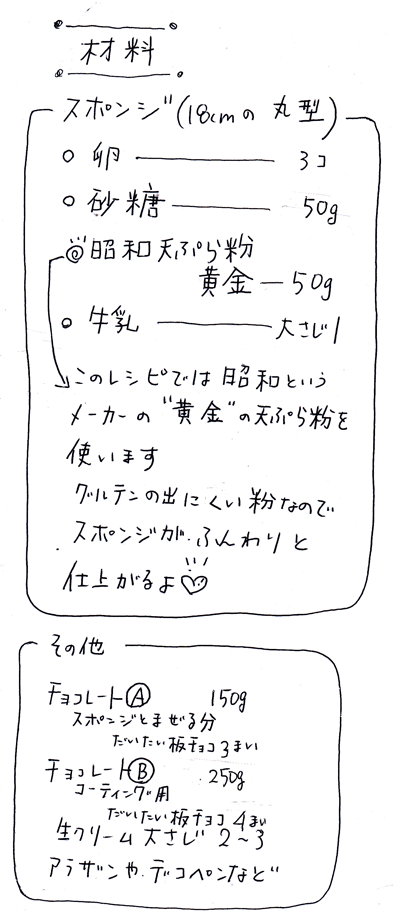 材料
スポンジ(18cmの 丸型)
○ 卵 ――― 3コ
○ 砂糖 ――― 50g
◎昭和天ぷら粉
黄金 ― 50g
○ 牛乳 ――― 大さじ1
このレシピでは昭和という
メーカーの"黄金"の天ぷら粉を
使います
グルテンの出にくい粉なので
スポンジが、ふんわりと
仕上がるよ♡
その他
チョコレートⒶ 150g
スポンジとまぜる分
だいたい板チョコ3まい
チョコレートⒷ 250g
コーティング用
だいたい板チョコ4まい
生クリーム 大さじ 2~3
アラザンや、デコペンなど